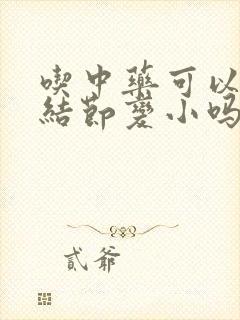 喫中藥可以
結節變小嗎
貳爺